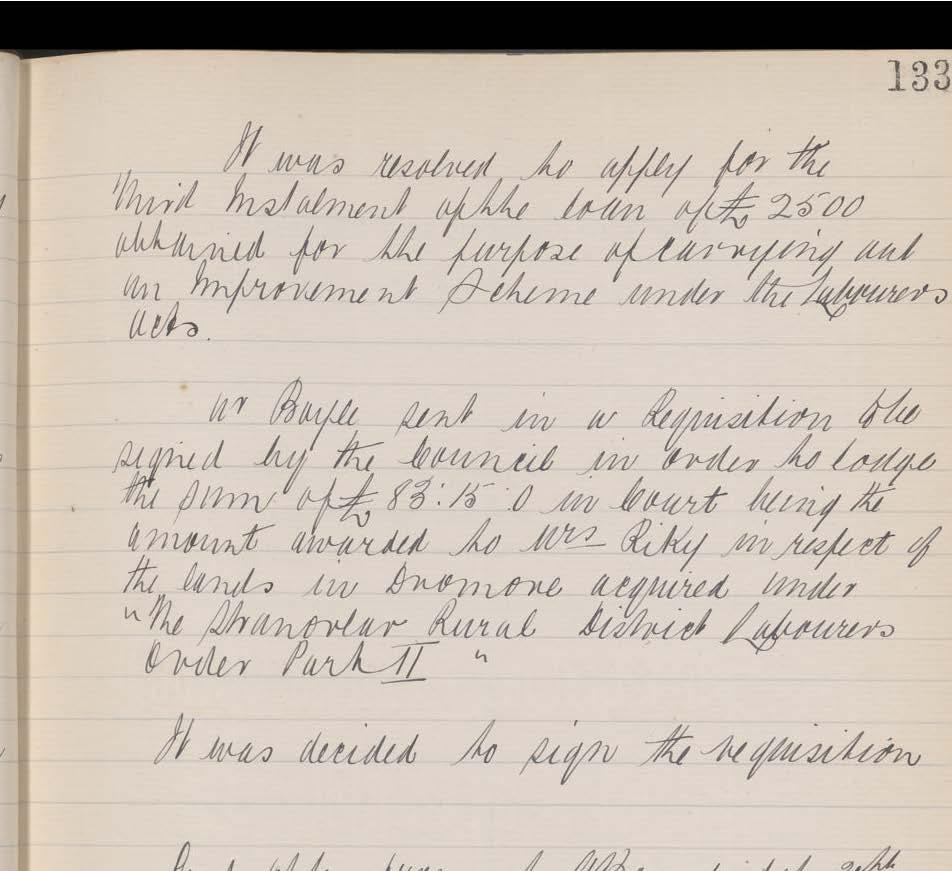 133
It was resolved to apply for the
Third Instalment of the loan of £ 2500
obtained for the purpose of carrying out
an Improvement Scheme under the Labourers
Acts.
Mr Boyle sent in a Requisition to be
signed by the Council in order to lodge
the sum of £ 83:15:0 in Court being the
amount awarded to Mrs Riky in respect of
the lands in Dromore acquired under
"The Stranorlar Rural District Labourers
Order Part II"
It was decided to sign the requisition